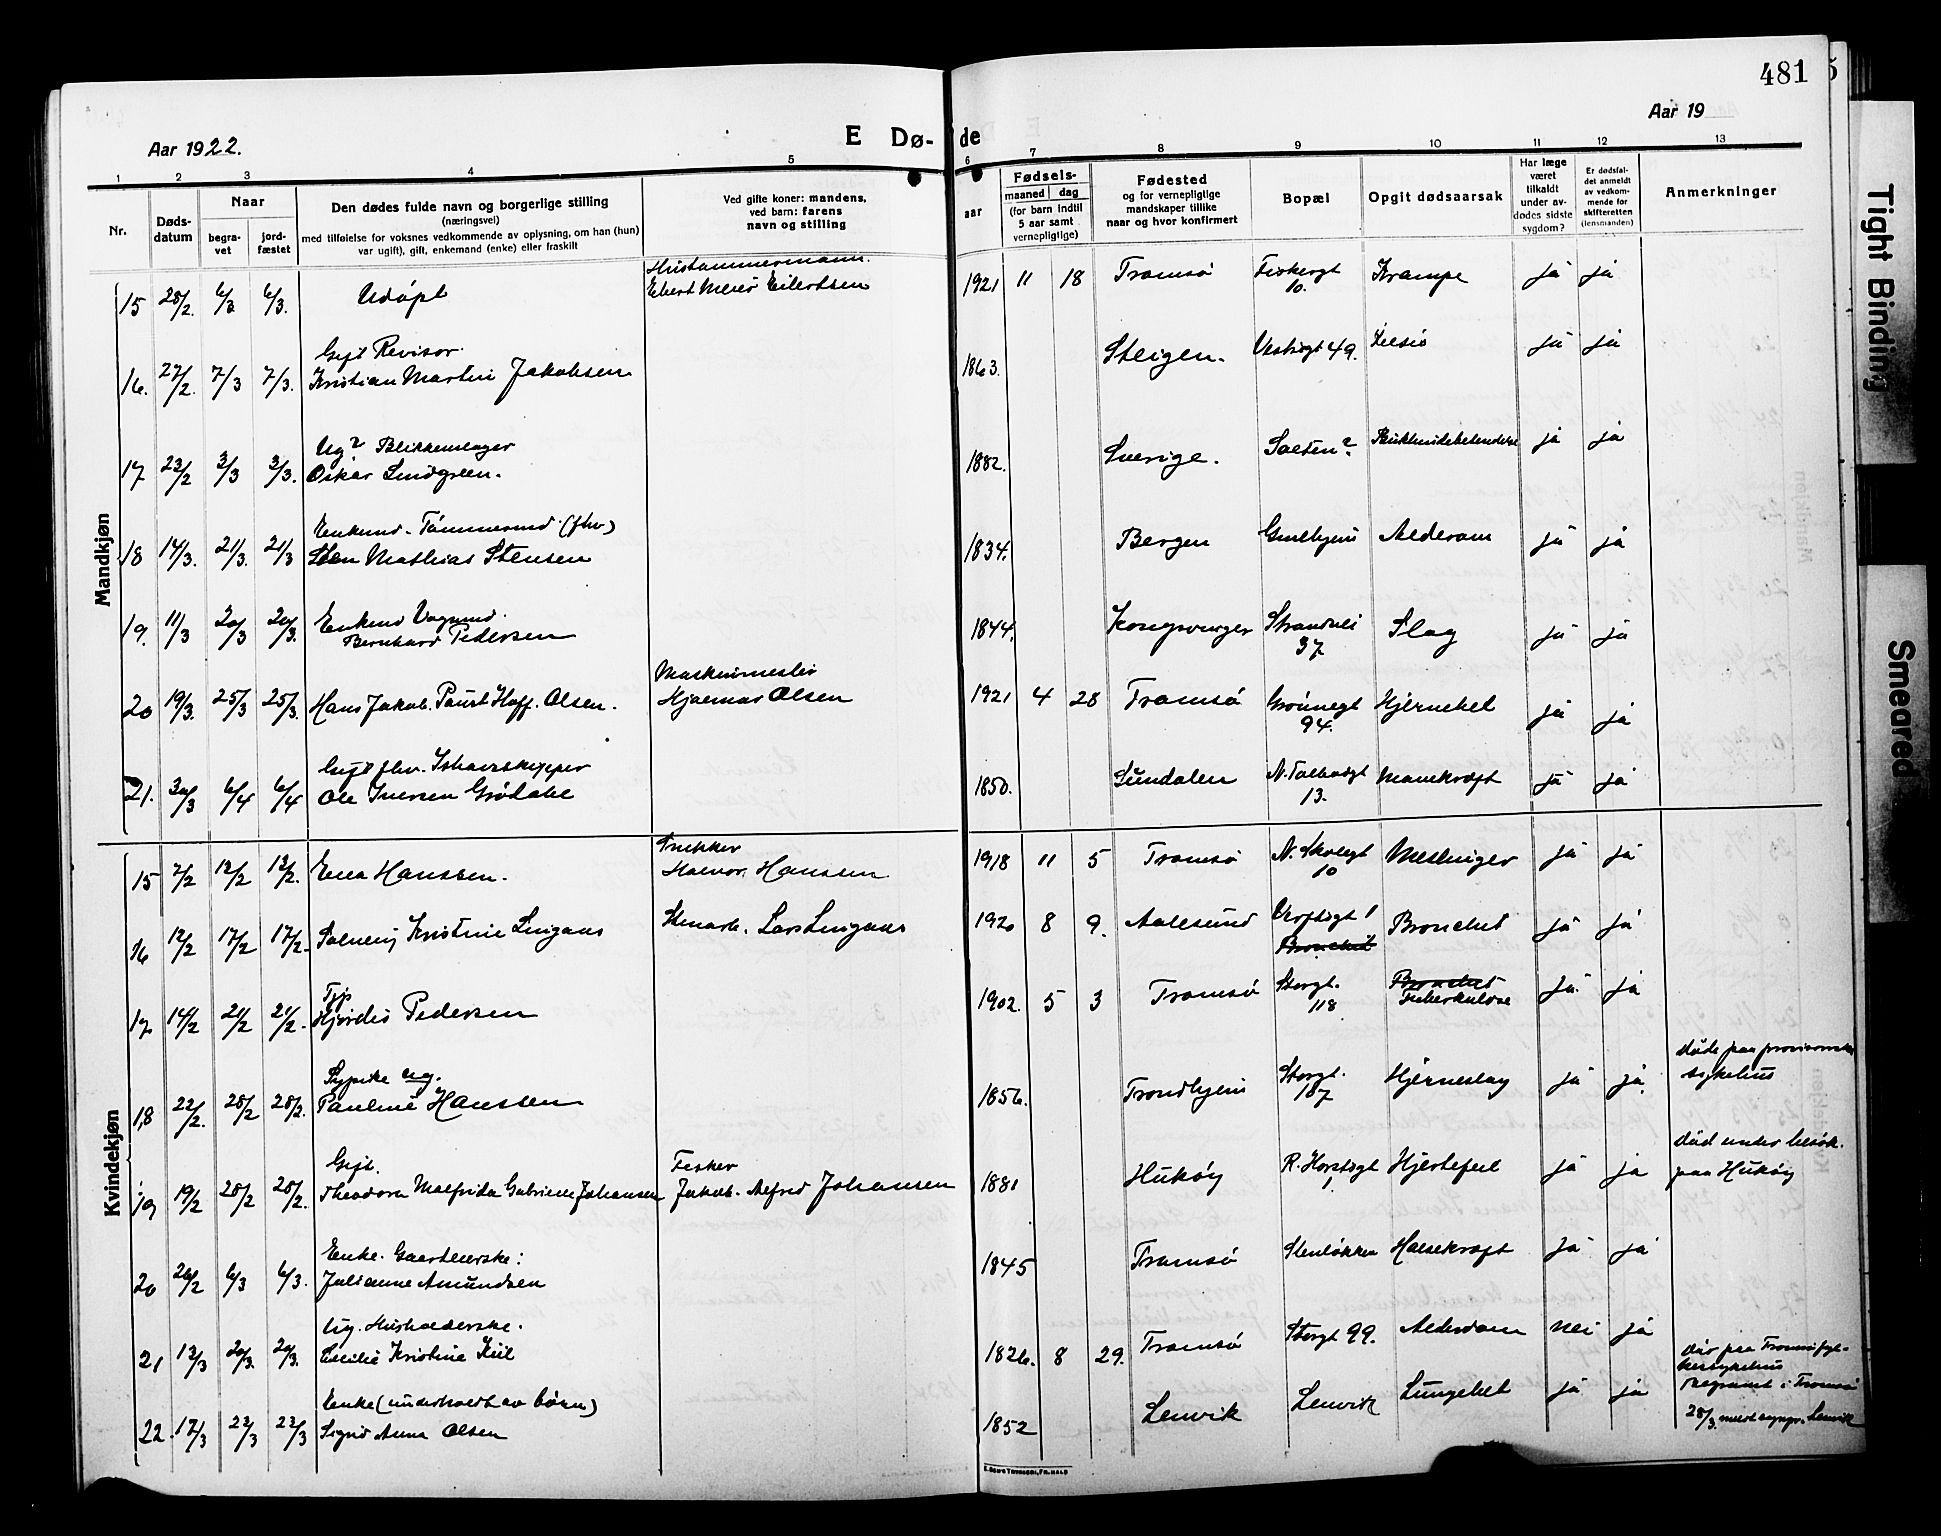 481
Aar 1922.
E Dø-de
Aar 19
1 2 3 4 5 6 7 8 9 10 11 12 13
Nr.
Døds-
datum
Naar
begra-
vet
jord-
fæstet
Den dødes fulde navn og borgerlige stilling
(næringsvei)
med tilføielse for voksnes vedkommende av oplysning, om han (hun)
var ugift), gift, enkemand (enke) eller fraskilt
Ved gifte koner: mandens,
ved barn: farens
navn og stilling
aar
Fødsels-
maaned dag
(for barn indtil
5 aar samt
vernepligtige)
Fødested
og for vernepligtige
mandskaper tillike
naar og hvor konfirmert
Bopæl
Opgit dødsaarsak
Har læge
været
tilkaldt
under av-
dødes sidste
sygdom?
Er dødsfal-
det anmeldt
av vedkom-
mende for
skifteretten
(lensmanden)
Anmerkninger
Mandkjøn
15 28/2. 6/3 6/3. Udøpt
Ebert Meier Eilertsen
1921 11 18 Tromsø Fiskergt 10. Krampe ja ja
Gift Revisor.
16. 27/2. 7/3 7/3. Kristian Martin Jakobsen
1863. Steigen. Vestregt 49. ja ja
Ug? Blikkenslager
17 23/2 3/3 3/3. Oskar Lindgreen.
1882. Sverige. ja ja
Enkemd. Tømmermd. (fhv)
18 14/3. 21/3. 21/3 Sten Mathias Stensen
1834. Bergen Gmlhjem Alderdom ja ja
Enkemd Vognmd.
19. 11/3 20/3 20/3. Bernhard Pedersen
1844. Kongsvinger Strandvei 37 Slag ja ja
Maskinmester
20 19/3. 25/3 25/3. Hans Jakob. Hoff. Olsen. Hjalmar Olsen
1921 4 28 Tromsø Grønnegt 94. ja ja
Gift fhv. Ishavsskipper
21. 30/3 6/4 6/4 Ole Iversen Grødahl
1850. Sundalen N. Tolbodgt 13. Mavekræft ja ja
Kvindekjøn
15 7/2 12/2 12/2. Hanssen.
Halvor. Hanssen
1918 11 5 Tromsø N. Skolegt 10 Meslinger ja ja
16 12/2 17/2 17/2. Solveig Kristine
Stenarb. Lars
1920 8 9. Aalesund Verftsgt 1 Bronchit ja ja
Bronchit
17 14/2 21/2 21/2. Hjørdis Pedersen
1902. 5 3 Tromsø Storgt. 118 Bronchit
Tuberkulose ja ja
Sypike ug.
18 22/2. 28/2 28/2. Pauline Hanssen
1856. Trondhjem Storgt. 187 Hjerneslag ja ja. Døde paa
sykehus
Gift. Fisker
19 19/2 28/2 28/2. Theodora Malfrida Gabriene Johansen Jakob. Alfred Johansen
1881 Hukøy R. Horstsgt 1 Hjertefeil ja ja Død under besøk.
paa Hukøy
Enke. Gaardeierske:
20 26/2 6/3 6/3. Julianne Amundsen
1845 Tromsø Stenløkken Halsekræft ja ja
Ug. Husholderske.
21 13/3 20/3. 20/3. Cecilie Kristine Kiil
1826. 8 29. Tromsø Storgt 99. Alderdom nei ja
Enke (underholdt av børn)
22. 17/3 23/3 23/3 Sigrid Anna Olsen
1852 Lenvik Lenvik Lungebet ja ja Død paa Tromsø fyl-
kessykehus
begravet i Tromsø
28/3. Lenvik
E. SEM'S TRYKKERI, FR.HALD
Tight Binding
Smeared